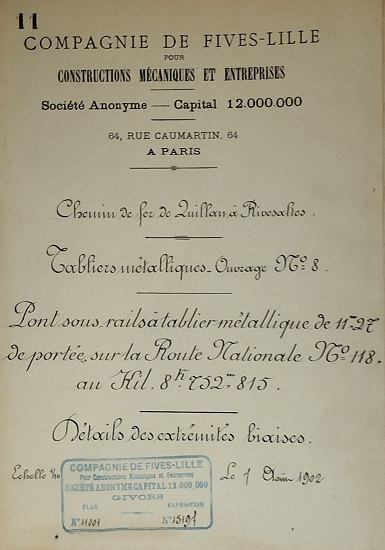 11
COMPAGNIE DE FIVES-LILLE
POUR
CONSTRUCTIONS MÉCANIQUES ET ENTREPRISES
Société Anonyme — Capital 12.000.000
64, RUE CAUMARTIN, 64
A PARIS
Chemin de fer de Quillan à Rivesaltes.
Tabliers métalliques. Ouvrage Nº 8.
Pont sous rails à tablier métallique de 11m27
de portée, sur la Route Nationale Nº 118.
au Kil. 8k752m815.
Détails des extrémités biaises.
Echelle 1/10
Le 1 1902
COMPAGNIE DE FIVES-LILLE
Pour Constructions Mécaniques et Entreprises
SOCIÉTÉ ANONYME CAPITAL 12.000.000
GIVORS
PLAN EXPÉDITION
Nº 11001 Nº 15197